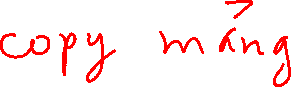 copy mảng